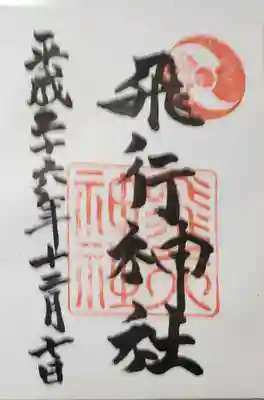 飛行神社
平成二十六年十二月七日
飛行神社